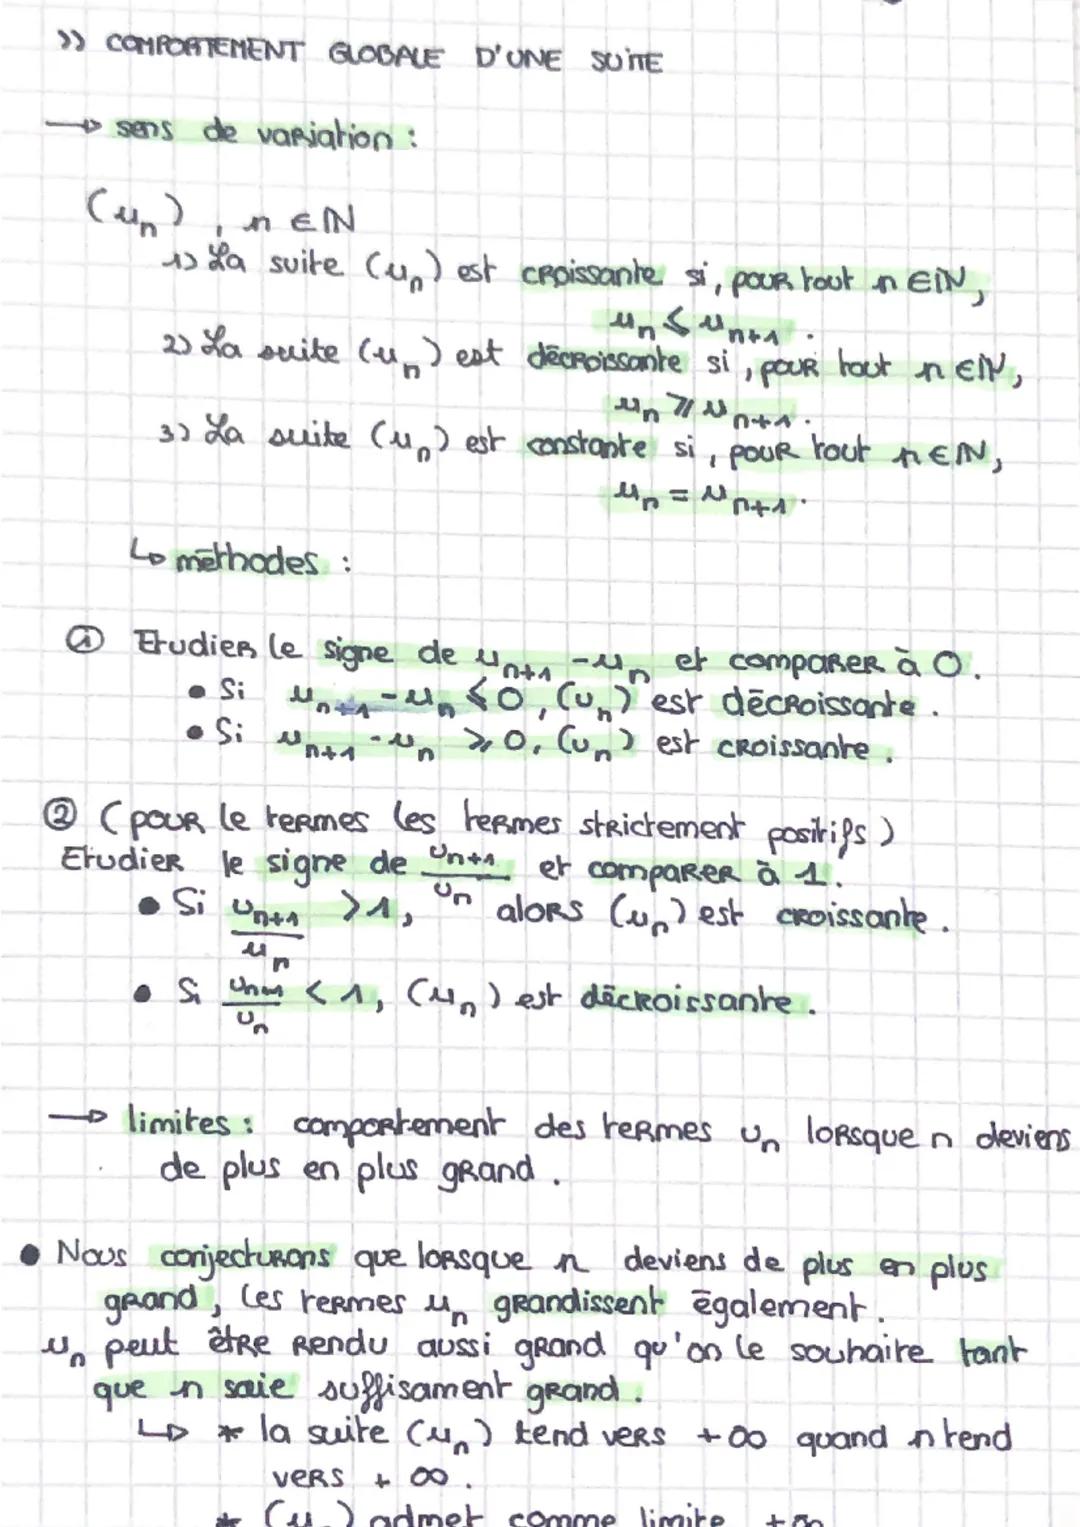 >> COMPORTEMENT GLOBALE D'UNE SUITE
→ sens de variation :
(un), n ∈ ℕ
1) La suite (un) est croissante si, pour tout n ∈ ℕ,
un ≤ un+1.
2) La suite (un) est décroissante si, pour tout n ∈ ℕ,
un ≥ un+1.
3) La suite (un) est constante si, pour tout n ∈ ℕ,
un = un+1.
↳ méthodes :
① Etudier le signe de un+1 - un et comparer à 0.
• Si un+1 - un ≤ 0, (un) est décroissante.
• Si un+1 - un ≥ 0, (un) est croissante.
② (pour le termes les termes strictement positifs)
Etudier le signe de un+1/un et comparer à 1.
• Si un+1/un > 1, alors (un) est croissante.
• Si un+1/un < 1, (un) est décroissante.
→ limites : comportement des termes un lorsque n deviens
de plus en plus grand.
• Nous conjecturons que lorsque n deviens de plus en plus
grand, les termes un grandissent également.
un peut être rendu aussi grand qu'on le souhaite tant
que n soie suffisament grand.
↳ * la suite (un) tend vers +∞ quand n tend
vers +∞.
* (un) admet comme limite +∞